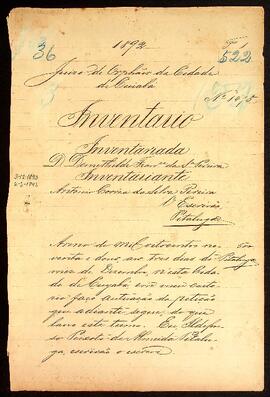 1892
Fl 1
36
522
Juizo de Orphãos da Cidade
de Cuiabá
Nº
Inventario
Inventariada
D. Domithilde Franca de Sª Pereira
3-12-1892
Inventariante
Antonio Corrêa da Silva Pereira
O Escrivão
Pitaluga
Anno de mil oitocentos no
venta e dous, aos tres dias do
mez de Dezembro, n'esta Cida
de de Cuyabá, em meu carto
rio faço autuação da petição
que adiante segue, do que
lavro este termo. Eu, Ildefon
so Peixoto de Almeida Pitalu
ga, escrivão o escrevi